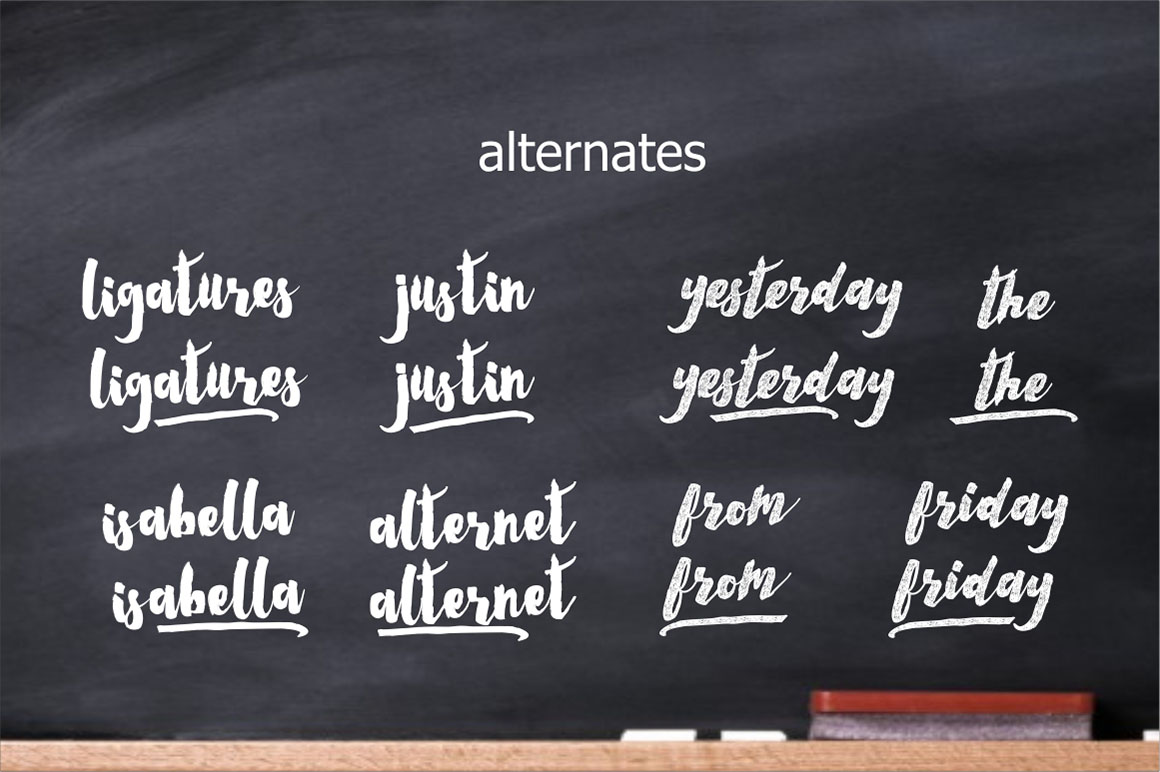 alternates
ligatures justin yesterday the
ligatures justin yesterday the
isabella alternet from friday
isabella alternet from friday